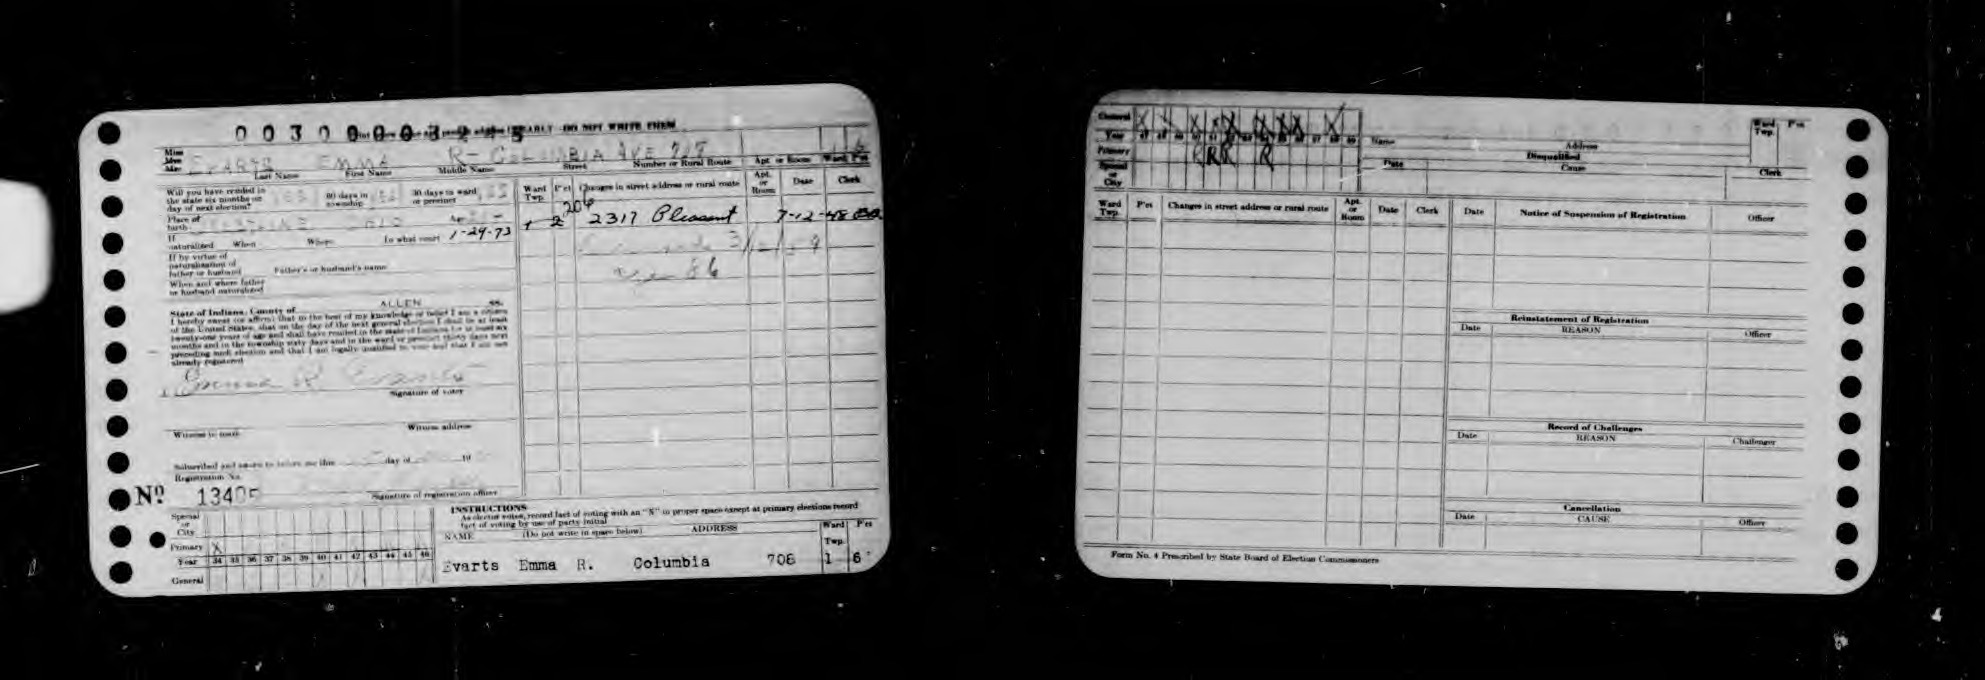 003000003245
PRINT EARLY DO NOT WRITE THEM
Miss
Mrs
Mr. EVARTS EMMA R- COLUMBIA AVE 708 1 6
Last Name First Name Middle Name Street Number or Rural Route Apt. or Room Ward P'ct
Will you have resided in
the state six months on YES 60 days in YES 30 days in ward YES
day of next election? township or precinct
Place of
birth OHIO Age
If
naturalized When Where In what court 1-29-73
If by virtue of
naturalization of
father or husband Father's or husband's name
When and where father
or husband naturalized
State of Indiana, County of ALLEN ss.
I hereby swear (or affirm) that to the best of my knowledge or belief I am a citizen
of the United States, that on the day of the next general election I shall be at least
twenty-one years of age and shall have resided in the state of Indiana for at least six
months and in the township sixty days and in the ward or precinct thirty days next
preceding such election and that I am legally qualified to vote and that I am not
already registered
Emma R. Evarts
Signature of voter
Witness to mark Witness address
Subscribed and sworn to before me this day of 19
Registration No.
Nº 13405 Signature of registration officer
Special
or
City
Primary X
Year 34 35 36 37 38 39 40 41 42 43 44 45 46
General
Ward Twp. P'ct Changes in street address or rural route Apt. or Room Date Clerk
1 2 204 2317 Pleasant 7-12-48
INSTRUCTIONS
As elector votes, record fact of voting with an "X" in proper space except at primary elections record
fact of voting by use of party initial
NAME (Do not write in space below) ADDRESS Ward Twp. P'ct
Evarts Emma R. Columbia 708 1 6
General X X X X X X X
Year 47 48 49 50 51 52 53 54 55 56 57 58 59
Primary R R R R
Special
or
City
Name Address Ward Twp. P'ct
Disqualified
Date Cause Clerk
Ward Twp. P'ct Changes in street address or rural route Apt. or Room Date Clerk
Date Notice of Suspension of Registration Officer
Reinstatement of Registration
Date REASON Officer
Record of Challenges
Date REASON Challenger
Cancellation
Date CAUSE Officer
Form No. 4 Prescribed by State Board of Election Commissioners